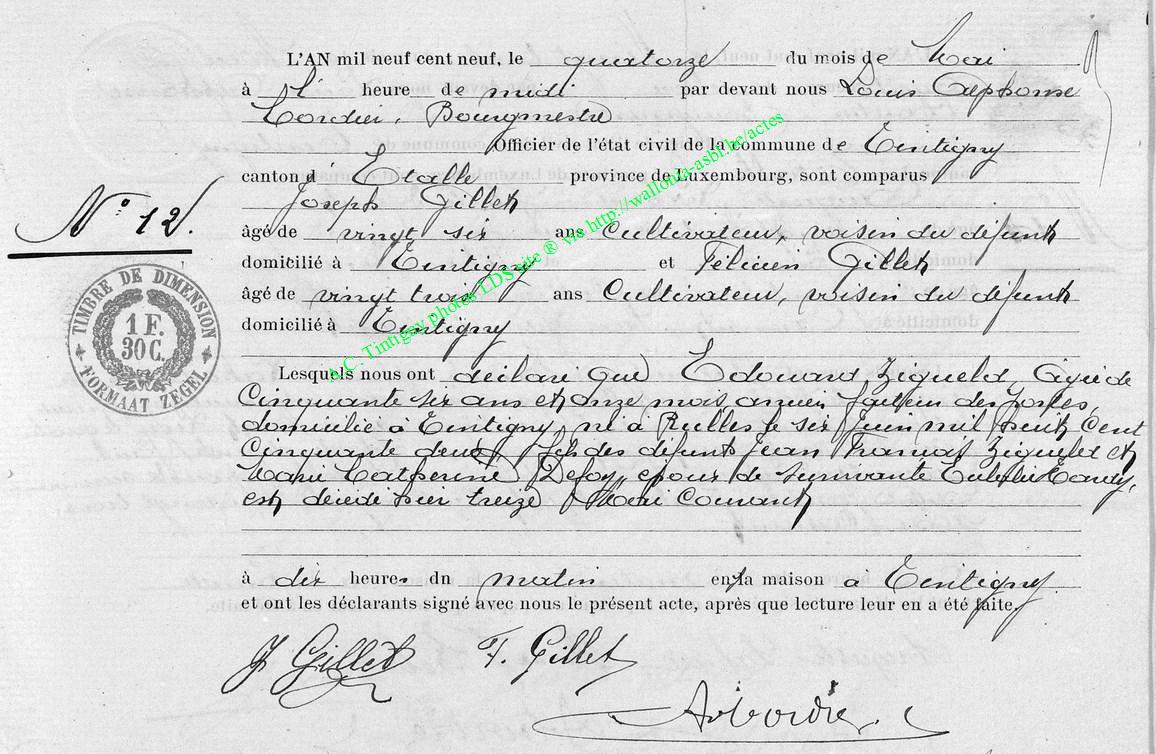 L'AN mil neuf cent neuf, le quatorze du mois de Mai
à heure de midi par devant nous Louis Alphonse
Cordier, Bourgmestre
Officier de l'état civil de la commune de Tintigny
canton d' Etalle province de Luxembourg, sont comparus
Joseph Gillet
N° 12.
âgé de vingt six ans Cultivateur, voisin du défunt
domicilié à Tintigny et Félicien Gillet
âgé de vingt trois ans Cultivateur, voisin du défunt
domicilié à Tintigny
TIMBRE DE DIMENSION
1 F.
30 C.
FORMAAT ZEGEL
Lesquels nous ont déclaré que Edouard Ziguelet, âgé de
Cinquante six ans et onze mois, ancien facteur des postes,
domicilié à Tintigny, né à Rulles le six Juin mil huit Cent
Cinquante deux, fils des défunts Jean François Ziguelet et
Marie Catherine Defoy, époux de survivante
est décédé hier treize Mai Courant
à dix heures du matin en sa maison à Tintigny
et ont les déclarants signé avec nous le présent acte, après que lecture leur en a été faite.
J Gillet F. Gillet
A. Cordier
A.C. Tintigny photos LDS site ® vis http://wallonia-asbl.be/actes